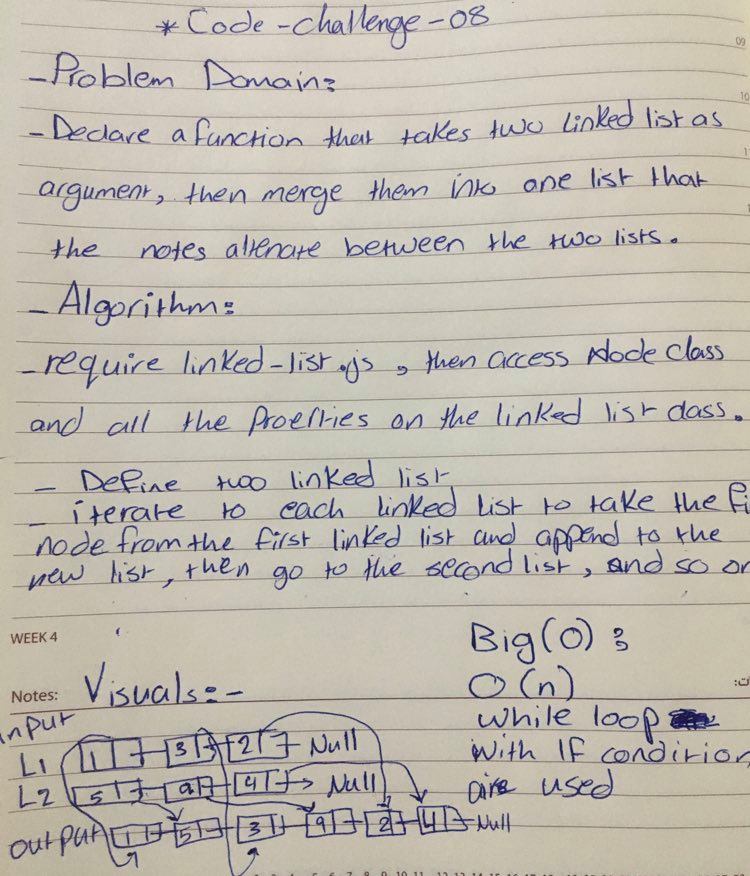 * Code-challenge-08
09
- Problem Domain:
10
- Declare a function that takes two linked list as
argument, then merge them into one list that
the notes altenate between the two lists.
- Algorithm:
- require linked-list.js, then access Node class
and all the Proerties on the linked list class.
- Define two linked list
- iterate to each linked list to take the fi
node from the first linked list and append to the
new list, then go to the second list, and so on
WEEK 4
Big(O):
Notes: Visuals:-
O(n)
while loop
with IF condition
are used
input
L1 1 3 2 Null
L2 5 9 4 Null
output 1 5 3 9 2 4 Null